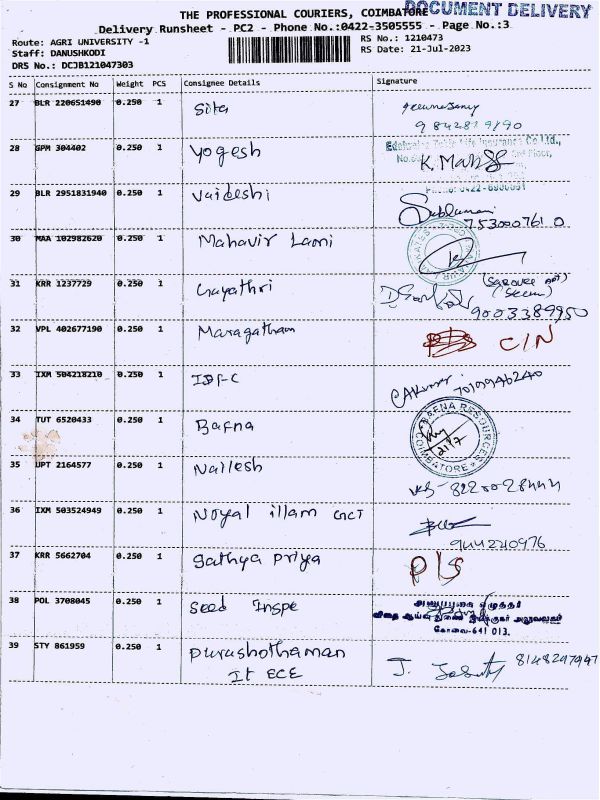 THE PROFESSIONAL COURIERS, COIMBATORE
DOCUMENT DELIVERY
Delivery Runsheet - PC2 - Phone No.:0422-3505555 - Page No.:3
Route: AGRI UNIVERSITY -1
RS No.: 1210473
Staff: DANUSHKODI
RS Date: 21-Jul-2023
DRS No.: DCJB121047303
S No Consignment No Weight PCS Consignee Details Signature
27 BLR 220651490 0.250 1 Sita
28 GPM 304402 0.250 1 Yogesh
Life Insurance Co Ltd.,
Floor,
K. Mani
29 BLR 2951831940 0.250 1 Vaideshi
7530007610
30 MAA 102982620 0.250 1 Mahavir Lami
31 KRR 1237729 0.250 1 Gayathri
9003389950
32 VPL 402677190 0.250 1 Maragatham C/N
33 IXM 504218210 0.250 1 IDFC
34 TUT 6520433 0.250 1 Bafna
BAFNA RESOURCES
21/7
COIMBATORE
35 UPT 2164577 0.250 1 Nailesh
36 IXM 503524949 0.250 1 Noyal illam GCT
37 KRR 5662704 0.250 1 Sathya Priya P/S
38 POL 3708045 0.250 1 Seed Inspe
கோவை-641 013.
39 STY 861959 0.250 1 Purushothaman
It ECE
8148297947